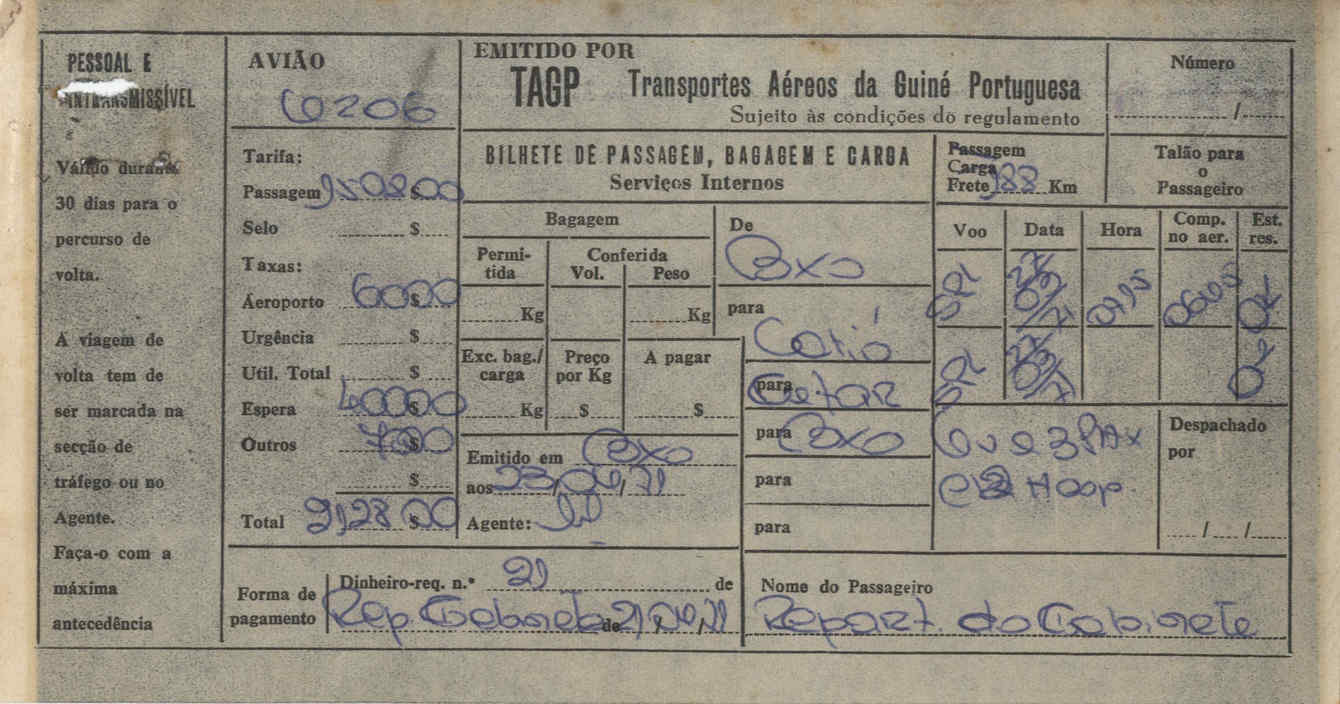 PESSOAL E
INTRANSMISSÍVEL
Válido durante
30 dias para o
percurso de
volta.
A viagem de
volta tem de
ser marcada na
secção de
tráfego ou no
Agente.
Faça-o com a
máxima
antecedência
AVIÃO
C206
Tarifa:
Passagem $ 00
Selo $
Taxas:
Aeroporto 60$00
Urgência $
Util. Total $
Espera 400$00
Outros $
$
Total $ 00
EMITIDO POR
TAGP Transportes Aéreos da Guiné Portuguesa
Sujeito às condições do regulamento
Número
/
BILHETE DE PASSAGEM, BAGAGEM E CARGA
Serviços Internos
Passagem
Carga
Frete 188 Km
Talão para
o
Passageiro
Bagagem
Permi-
tida
Conferida
Vol. Peso
Kg Kg
Exc. bag./
carga
Preço
por Kg
A pagar
Kg $ $
Emitido em BXO
aos
Agente:
De
BXO
para
Catió
para
para BXO
para
para
Voo Data Hora Comp.
no aer. Est.
res.
SPL 0715 0645 OK
SPL OK
3 PAX
Despachado
por
/ /
Forma de
pagamento
Dinheiro-req. n.º 21 de
Rep. Gabinete de
Nome do Passageiro
Repart. do Gabinete